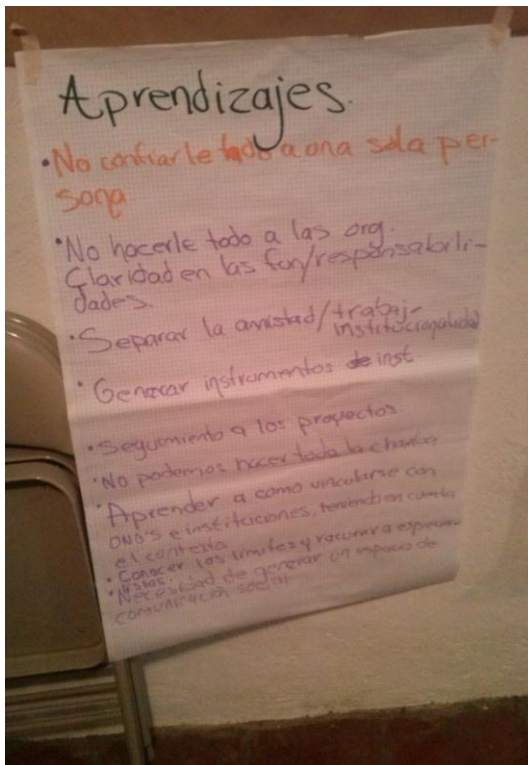 Aprendizajes.
• No confiarle todo a una sola per-
sona
• No hacerle todo a las org.
Claridad en las fun/responsabili-
dades.
• Separar la amistad/trabaj-
institucionalidad
• Generar instrumentos de inst
• Seguimiento a los proyectos.
• No podemos hacer toda la chamba
• Aprender a como vincularse con
ONG's e instituciones, teniendo en cuenta
el contexto
• Conocer los límites y recurrir a especia-
listas.
• Necesidad de generar un espacio de
comunicación social